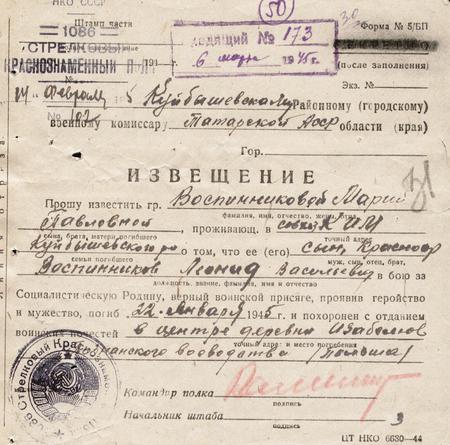 НКО СССР
50
Штамп части
Форма № 5/БП
1086
СТРЕЛКОВЫЙ
КРАСНОЗНАМЕННЫЙ ПОЛК
одящий № 173
6 марта 1945г.
(после заполнения)
Экз. №
14 февраля 5
№ 102
Куйбышевскому Районному (городскому)
военному комиссару Татарской АССР области (края)
Гор.
ИЗВЕЩЕНИЕ
Прошу известить гр. Воспинниковой Марии
фамилия, имя, отчество, жены, отца
Павловной проживающ. в совхоз КИМ
сына, брата, матери погибшего
точный адрес
Куйбышевского о том, что ее (его) сын, красноар
семьи погибшего
муж, сын, отец, брат,
Воспинников Леонид Васильевич в бою за
должность, звание, фамилия, имя и отчество
Социалистическую Родину, верный воинской присяге, проявив геройство
и мужество, погиб 22 января 1945 г. и похоронен с отданием
воинских почестей в центре деревни
точный адрес и место погребения
воеводства (Польша)
Командир полка
подпись
Начальник штаба
подпись
3
ЦТ НКО 6630—44